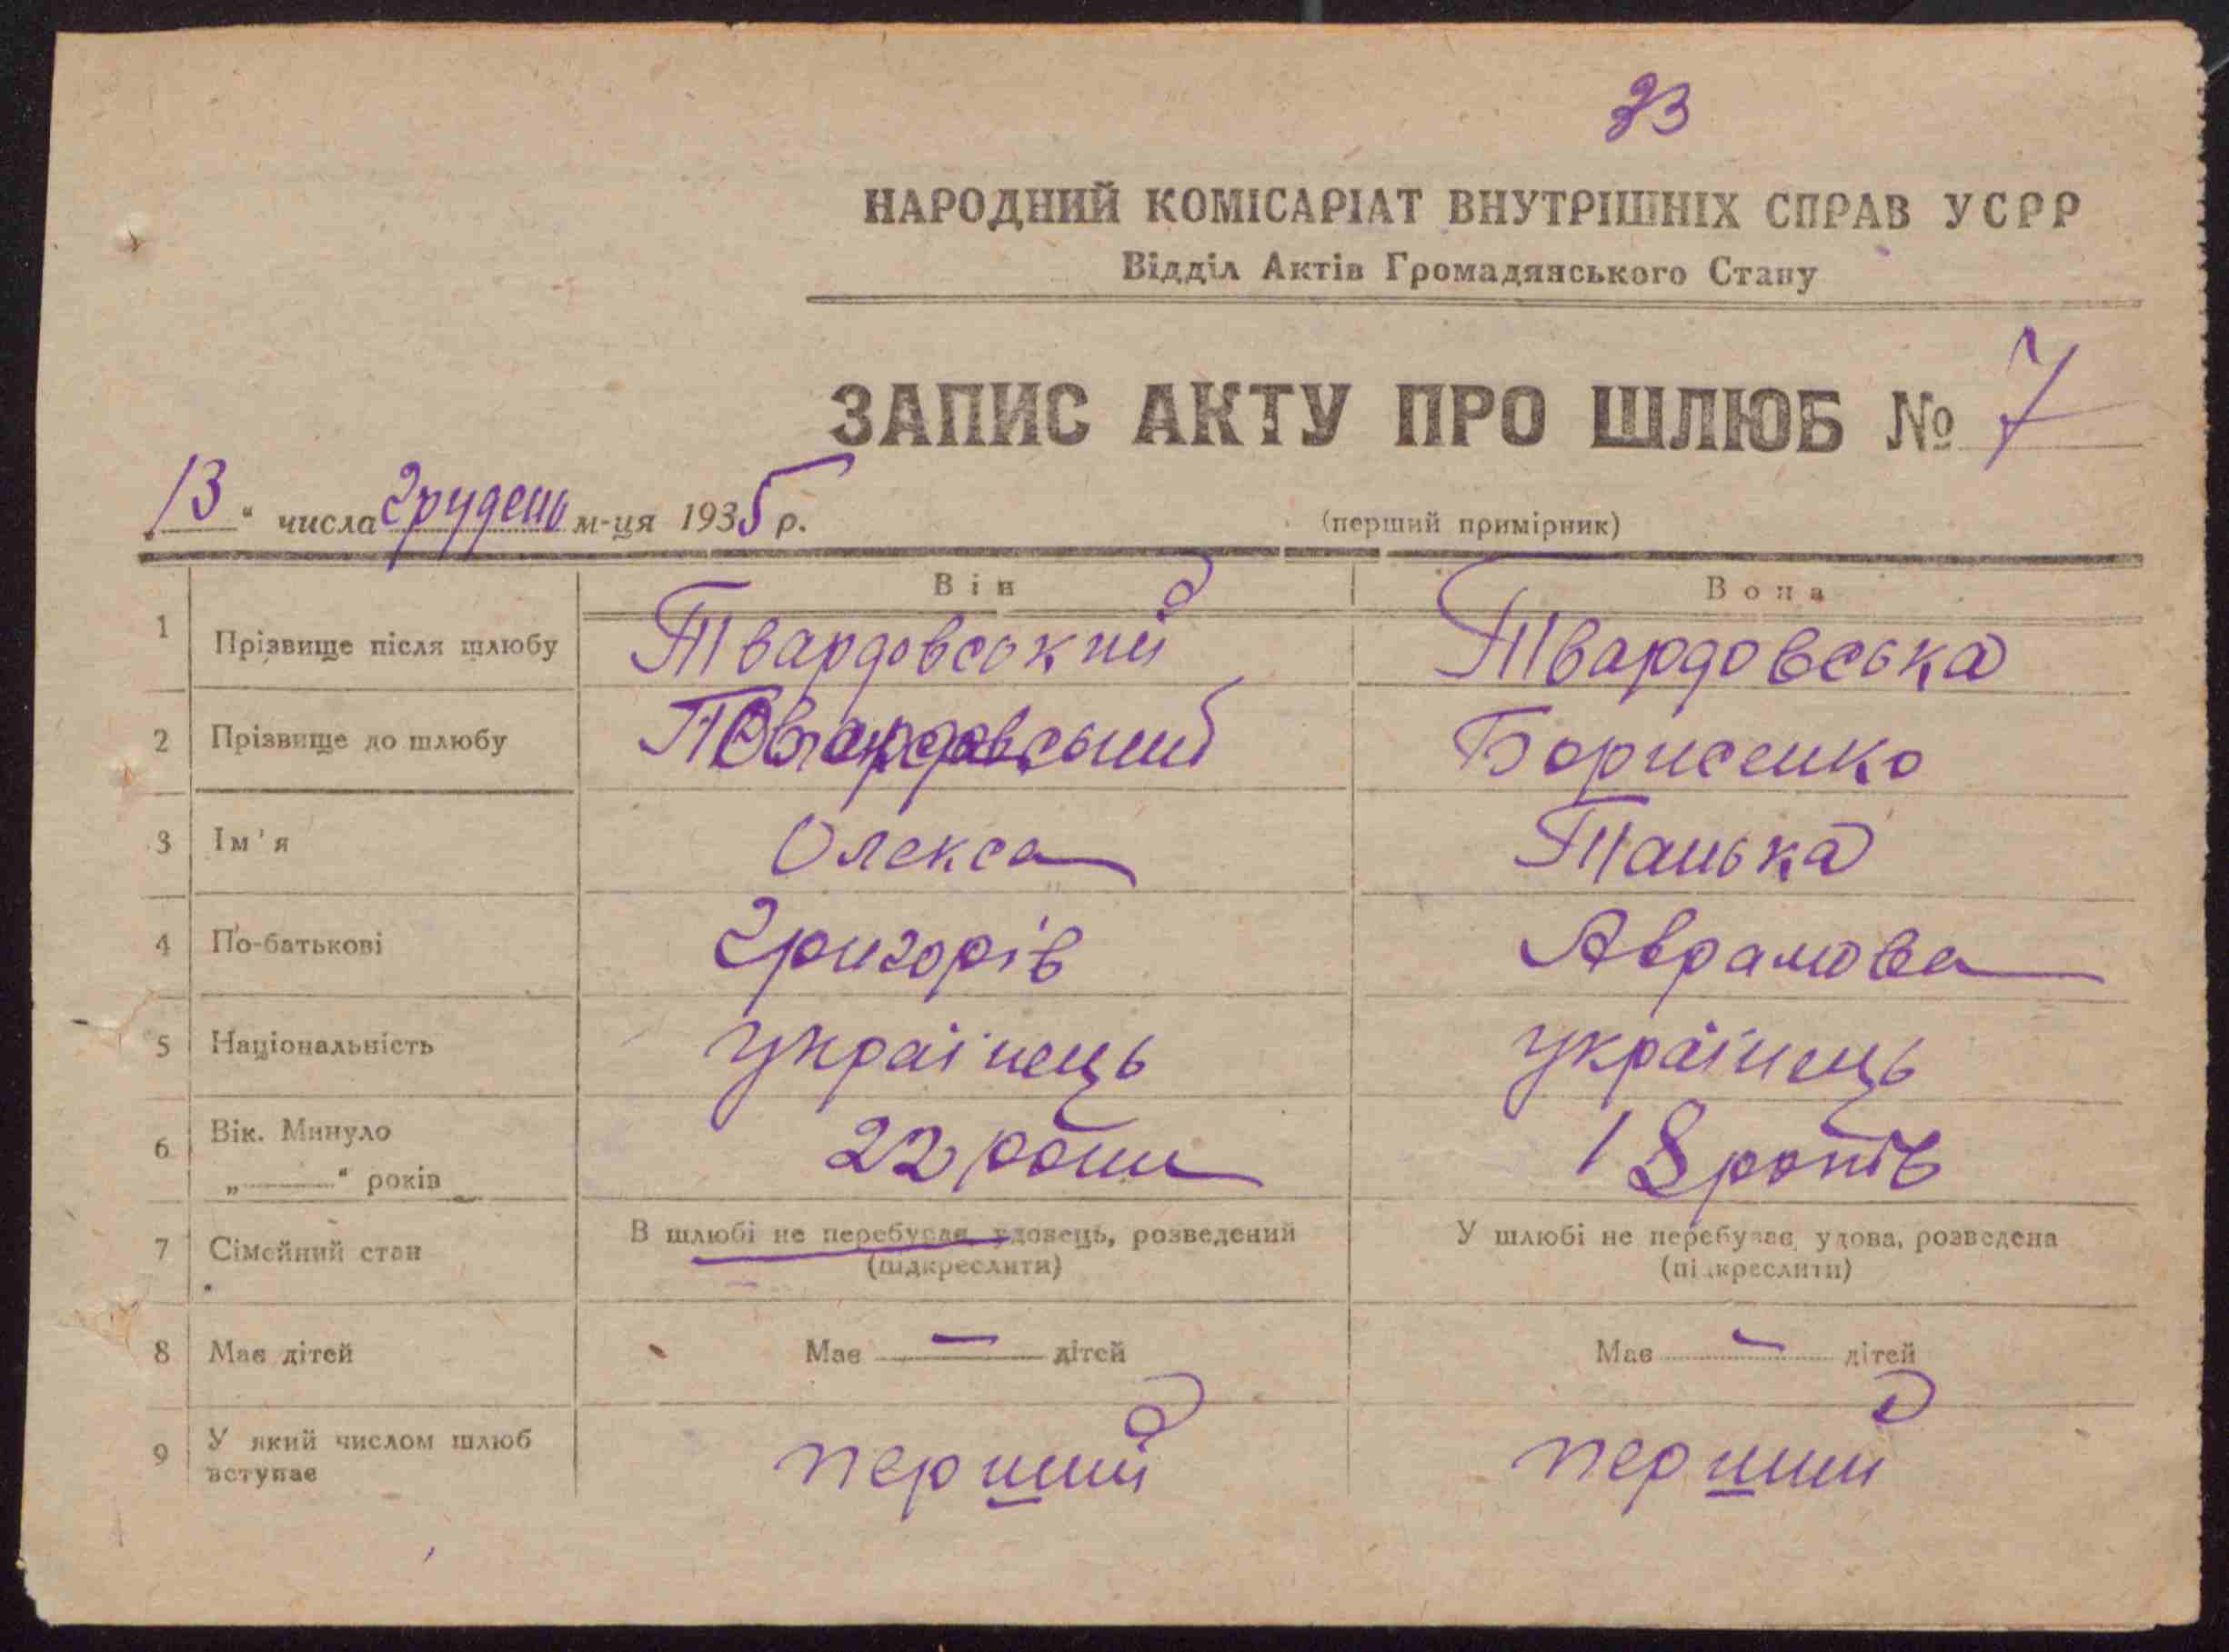 33
НАРОДНИЙ КОМІСАРІАТ ВНУТРІШНІХ СПРАВ УСРР
Відділ Актів Громадянського Стану
ЗАПИС АКТУ ПРО ШЛЮБ № 7
„13“ числа Грудень м-ця 1935 р. (перший примірник)
Він Вона
1 Прізвище після шлюбу Твардовський Твардовська
2 Прізвище до шлюбу Твардовський Борисенко
3 Ім'я Олекса Танька
4 По-батькові Григорів Аврамова
5 Національність українець українець
6 Вік. Минуло 22 роки 18 років
„ “ років
7 Сімейний стан В шлюбі не перебував, удовець, розведений У шлюбі не перебуває, удова, розведена
(підкреслити) (підкреслити)
8 Має дітей Має — дітей Має — дітей
9 У який числом шлюб вступає перший перший